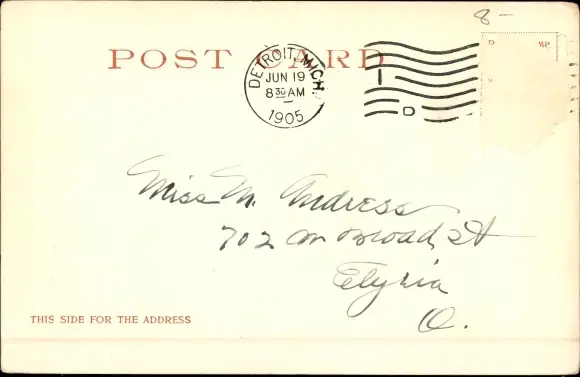 8-
POST CARD
DETROIT, MICH.
JUN 19
8 30 AM
1905
D
Miss M. Andress
702 W Broad St
Elyria
O.
THIS SIDE FOR THE ADDRESS